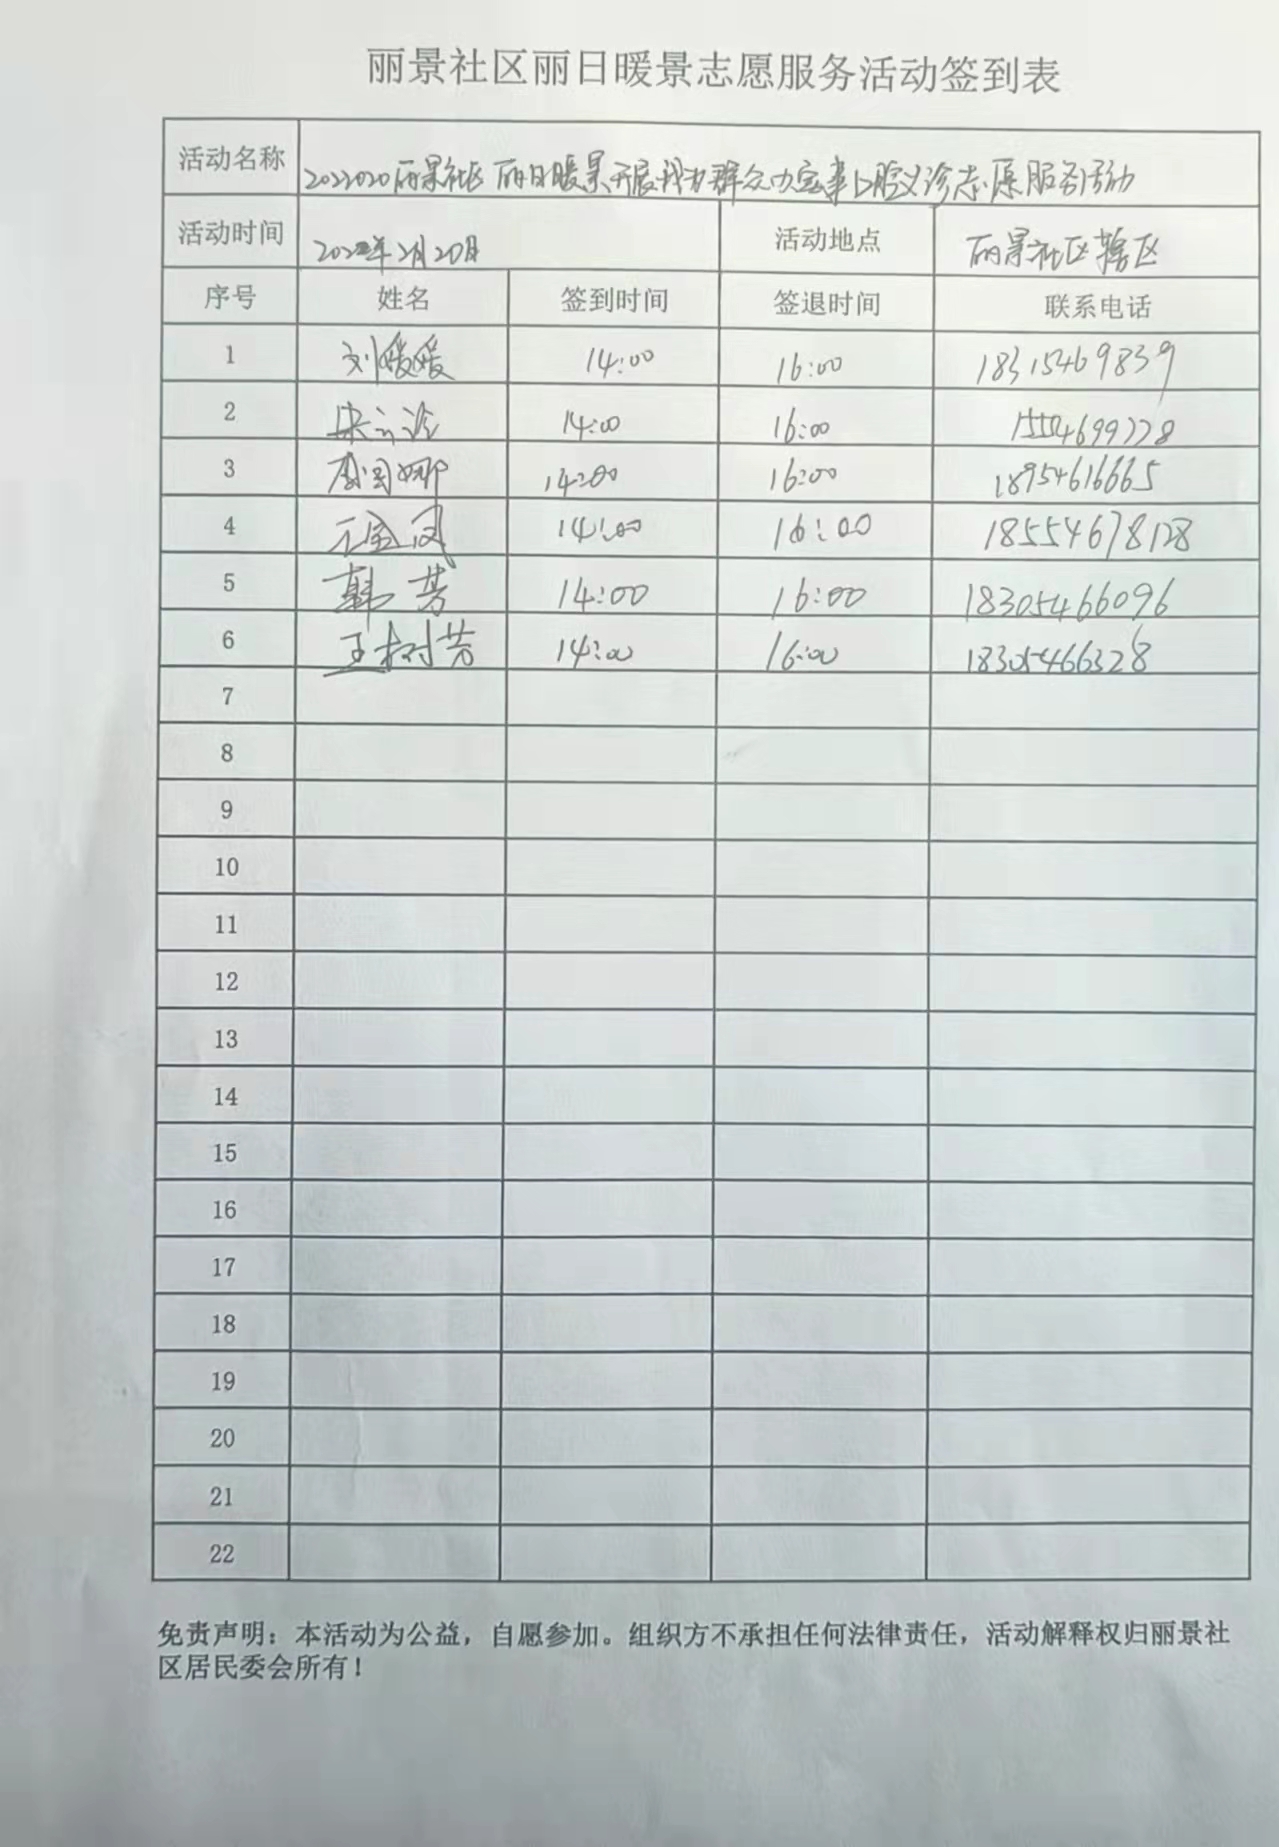 丽景社区丽日暖景志愿服务活动签到表
活动名称 2022020丽景社区丽日暖景开展我为群众办实事口腔义诊志愿服务活动
活动时间 2022年2月20日 活动地点 丽景社区辖区
序号 姓名 签到时间 签退时间 联系电话
1 刘媛媛 14:00 16:00 18315469839
2 14:00 16:00 15554699778
3 14:00 16:00 18954616665
4 14:00 16:00 18554678128
5 韩芳 14:00 16:00 18305466096
6 王树芳 14:00 16:00 18305466328
7
8
9
10
11
12
13
14
15
16
17
18
19
20
21
22
免责声明：本活动为公益，自愿参加。组织方不承担任何法律责任，活动解释权归丽景社
区居民委会所有！